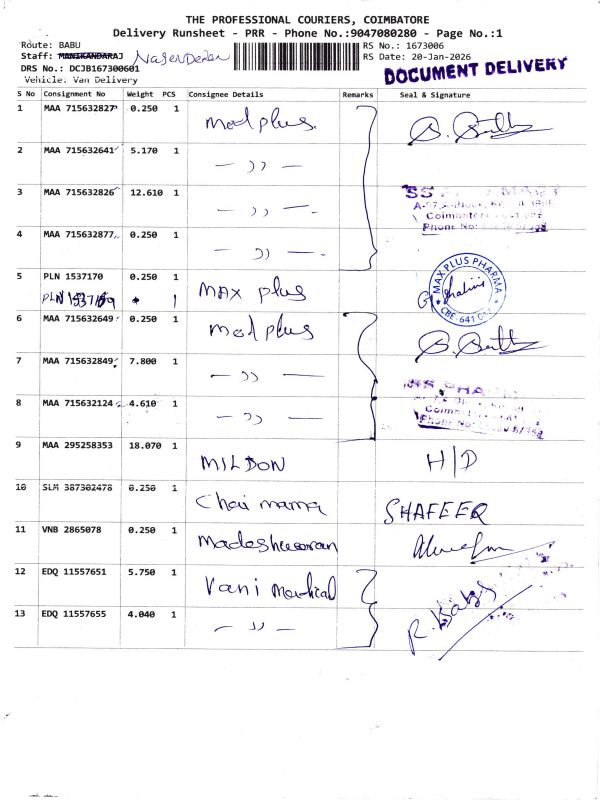 THE PROFESSIONAL COURIERS, COIMBATORE
Delivery Runsheet - PRR - Phone No.:9047080280 - Page No.:1
Route: BABU
RS No.: 1673006
Staff: MANIKANDARAJ Nagendran
RS Date: 20-Jan-2026
DRS No.: DCJB167300601
DOCUMENT DELIVERY
Vehicle: Van Delivery
S No Consignment No Weight PCS Consignee Details Remarks Seal & Signature
1 MAA 715632827 0.250 1 Med plus.
2 MAA 715632641 5.170 1 — ,, —
3 MAA 715632826 12.610 1 — ,, —
4 MAA 715632877 0.250 1 — ,, —
Phone No:
5 PLN 1537170 0.250 1 MAX plus
1
MAX PLUS PHARMA
CBE-641
6 MAA 715632649 0.250 1 Med plus
7 MAA 715632849 7.800 1 — ,, —
8 MAA 715632124 4.610 1 — ,, —
9 MAA 295258353 18.070 1 MILDON H/D
10 SLM 387302478 0.250 1 Chai mama SHAFEER
11 VNB 2865078 0.250 1 Madeshwaran
12 EDQ 11557651 5.750 1 Vani Medical
13 EDQ 11557655 4.040 1 — ,, —
R. Babu